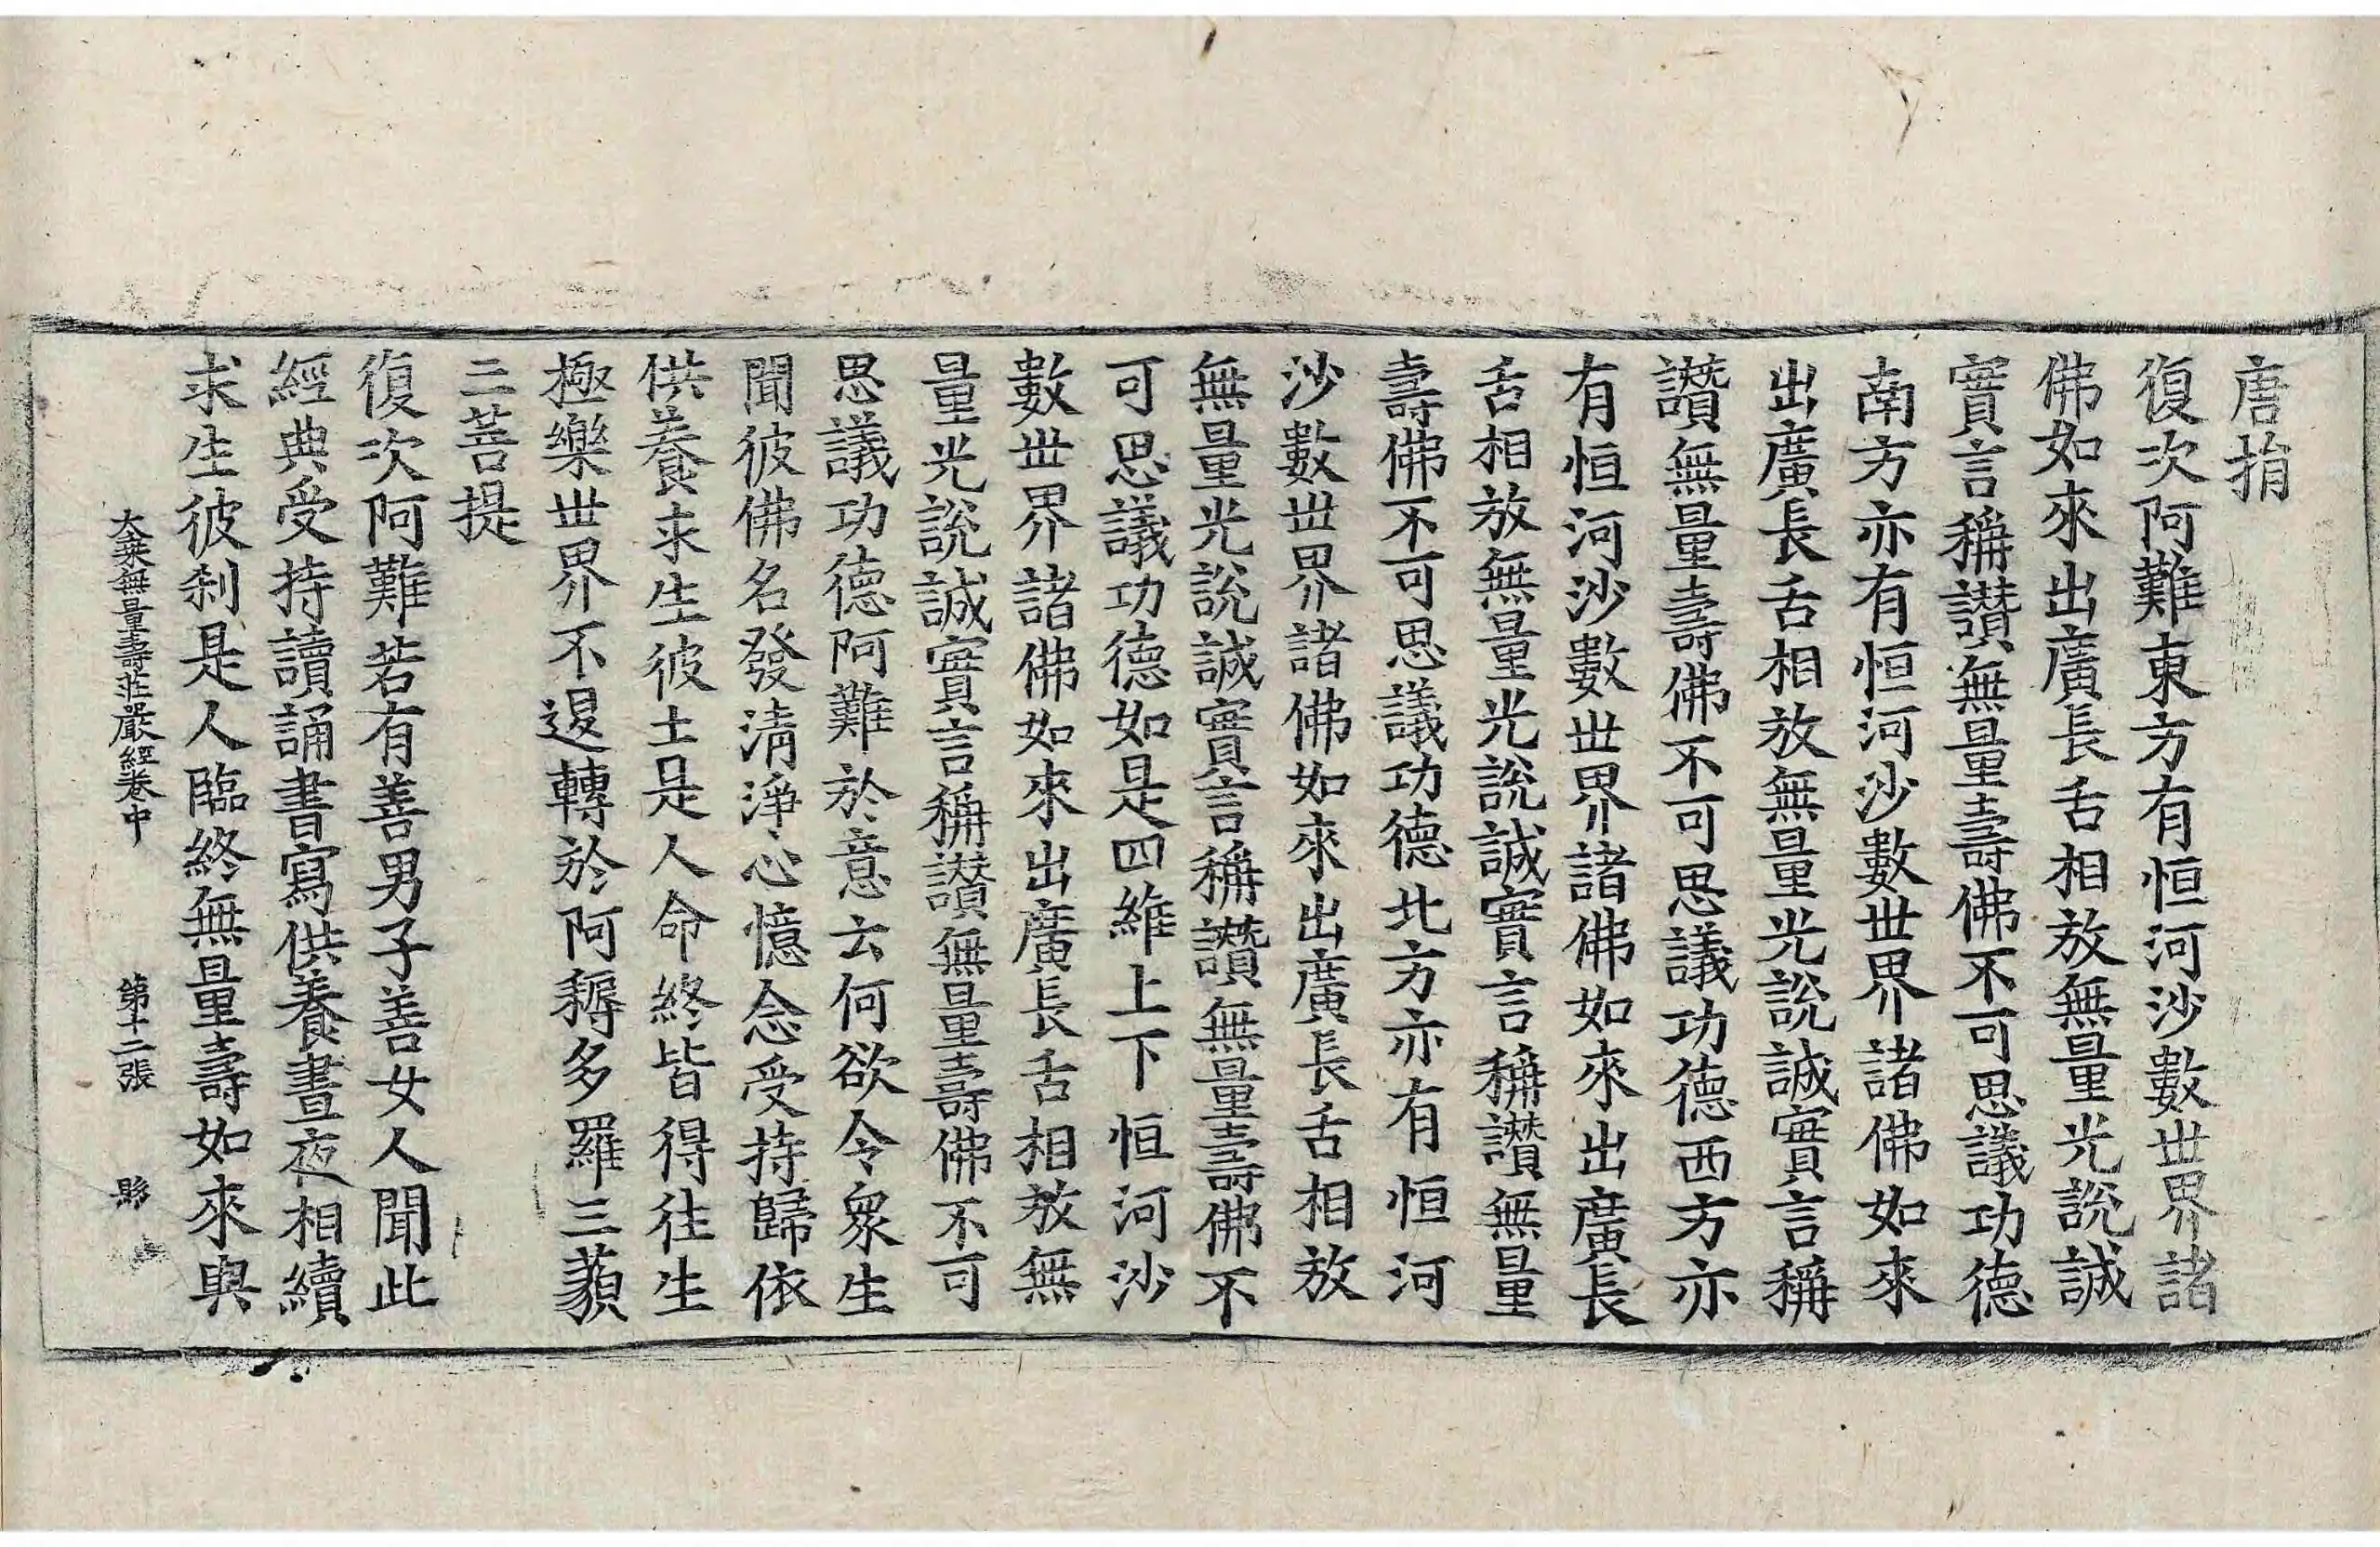 唐捐
復次阿難東方有恒河沙數世界諸
佛如來出廣長舌相放無量光說誠
實言稱讃無量壽佛不可思議功德
南方亦有恒河沙數世界諸佛如來
出廣長舌相放無量光說誠實言稱
讃無量壽佛不可思議功德西方亦
有恒河沙數世界諸佛如來出廣長
舌相放無量光說誠實言稱讃無量
壽佛不可思議功德北方亦有恒河
沙數世界諸佛如來出廣長舌相放
無量光說誠實言稱讃無量壽佛不
可思議功德如是四維上下恒河沙
數世界諸佛如來出廣長舌相放無
量光說誠實言稱讃無量壽佛不可
思議功德阿難於意云何欲令衆生
聞彼佛名發清淨心憶念受持歸依
供養求生彼土是人命終皆得往生
極樂世界不退轉於阿耨多羅三藐
三菩提
復次阿難若有善男子善女人聞此
經典受持讀誦書寫供養晝夜相續
求生彼刹是人臨終無量壽如來與
大乘無量壽莊嚴經卷中 第十二張